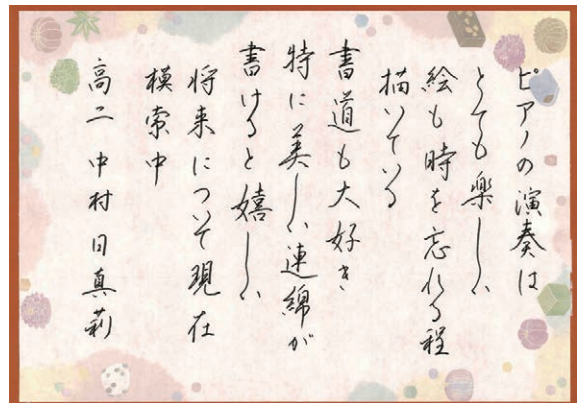 ピアノの演奏は
とても楽しい
絵も時を忘れる程
描いている
書道も大好き
特に美しい連綿が
書けると嬉しい
将来について現在
模索中
高二 中村日真莉